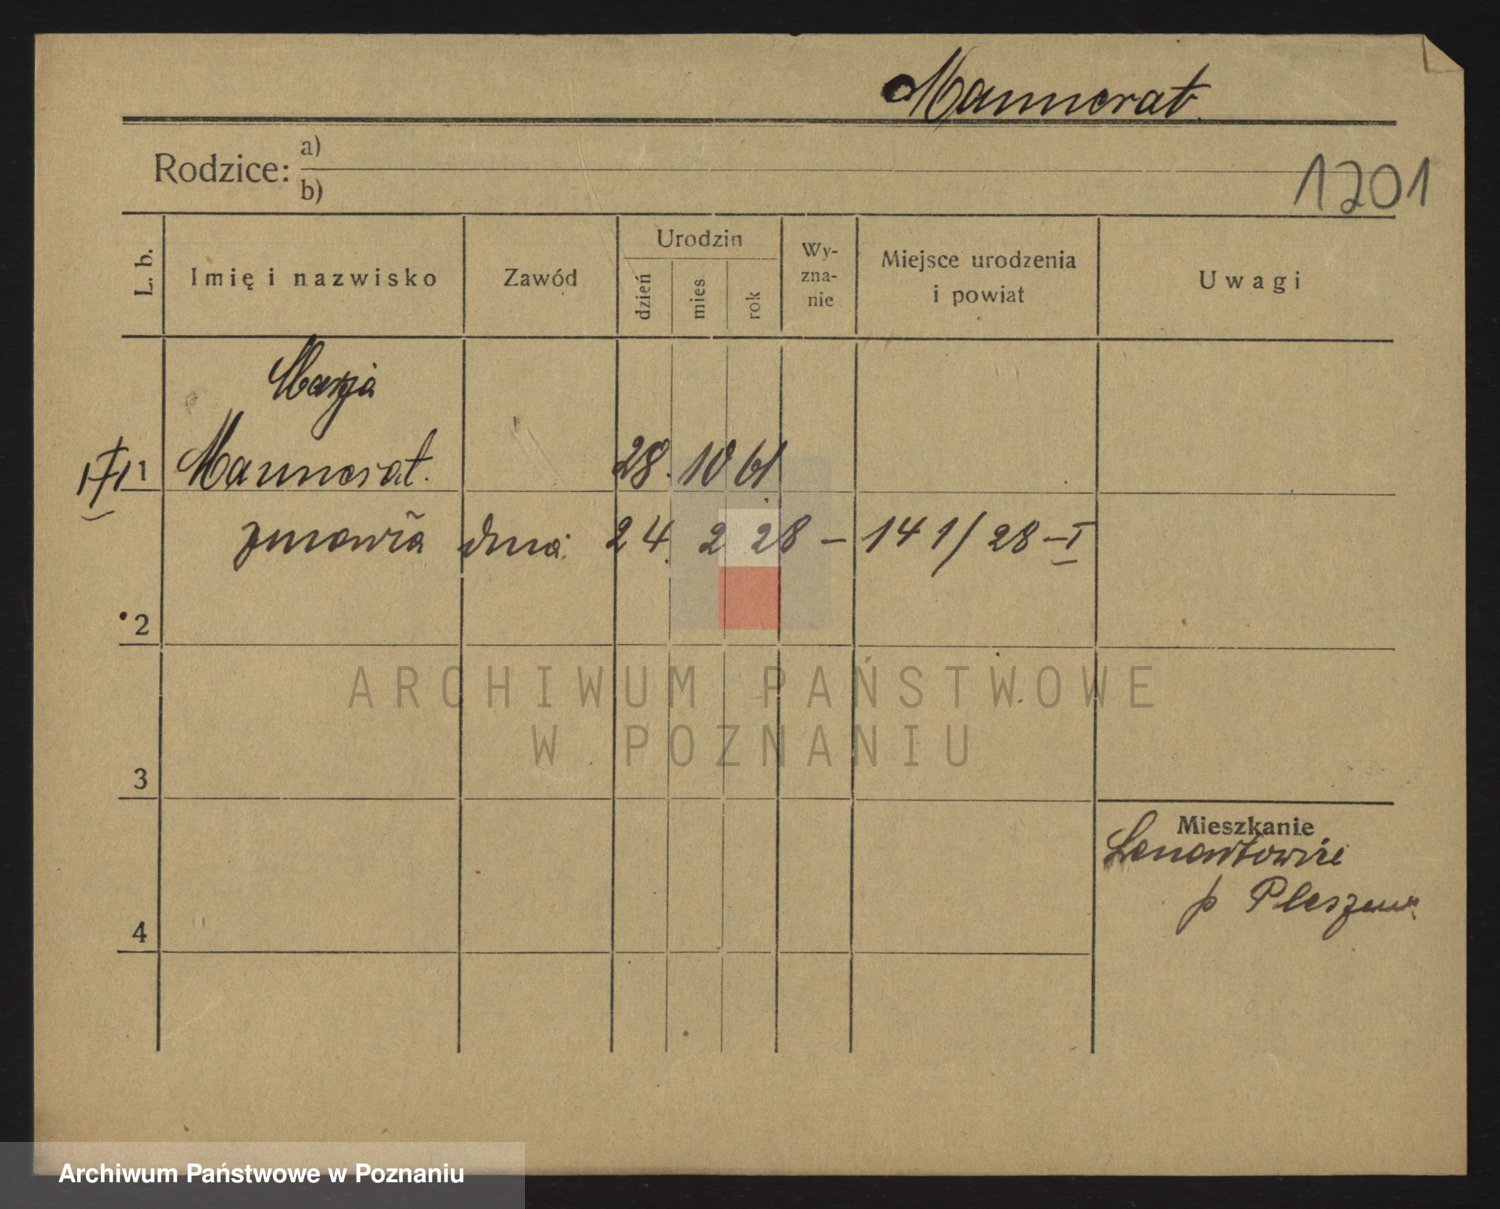 Mannerat
Rodzice: a)
b)
1201
L. b.
Imię i nazwisko
Zawód
Urodzin
dzień
mies
rok
Wy-
zna-
nie
Miejsce urodzenia
i powiat
Uwagi
Marja
1 Mannerat. 28. 10 61
zmarła dnia 24. 2 28 – 141/28 – I
2
3
4
Mieszkanie
p Pleszew
ARCHIWUM PAŃSTWOWE
W POZNANIU
Archiwum Państwowe w Poznaniu